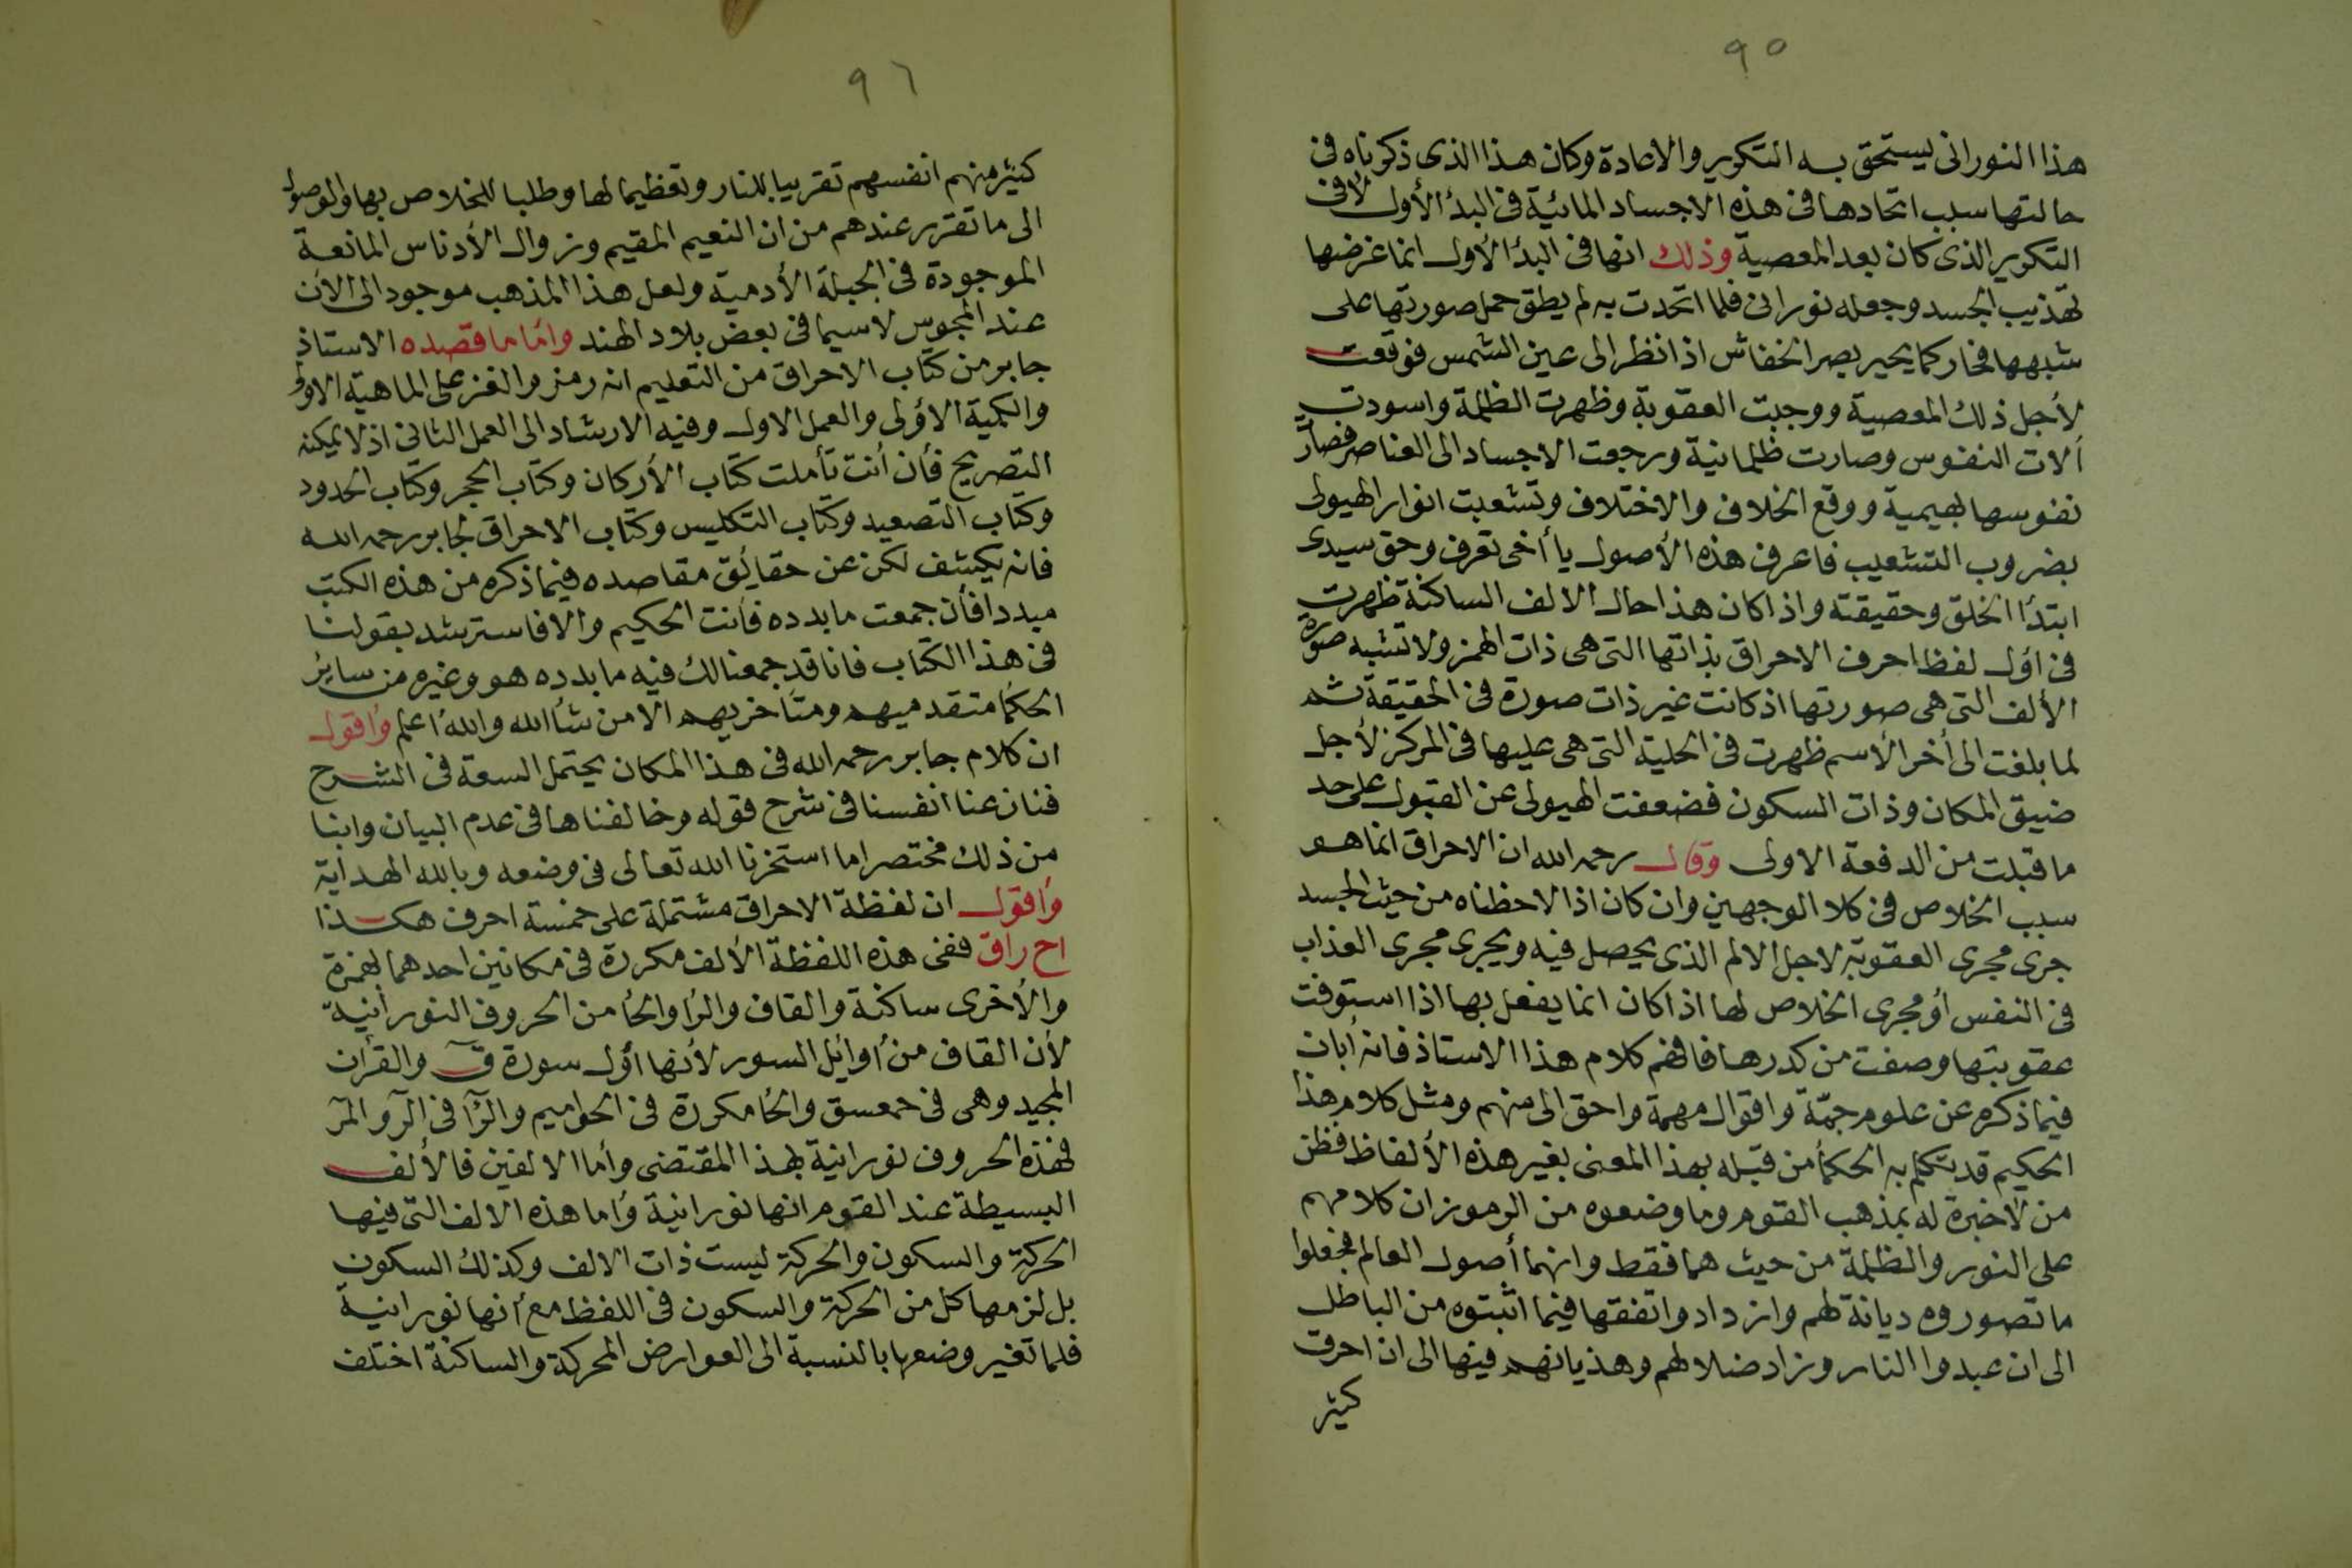 ٩٥
هذا النورانى يستحق به التكوير والاعادة وكان هذا الذى ذكرناه فى
حالتها سبب اتحادها فى هذه الاجساد المائية فى البدأ الأول لا فى
التكوير الذى كان بعد المعصية وذلك انها فى البدأ الأول انما غرضها
تهذيب الجسد وجعله نورانى فلما اتحدت به لم يطق حمل صورتها على
شبهها فحار كما يحير بصر الخفاش اذا نظر الى عين الشمس فوقعت
لأجل ذلك المعصية ووجبت العقوبة وظهرت الظلمة واسودت
آلات النفوس وصارت ظلمانية ورجعت الاجساد الى العناصر فصارت
نفوسها بهيمية ووقع الخلاف والاختلاف وتشعبت انوار الهيولى
بضروب التشعيب فاعرف هذه الأصول يا أخى تعرف وحق سيدى
ابتدأ الخلق وحقيقته واذا كان هذا حال الالف الساكنة ظهرت
فى اول لفظ احرف الاحراق بذاتها التى هى ذات الهمز ولا تشبه صورة
الألف التى هى صورتها اذ كانت غير ذات صورة فى الحقيقة ثم
لما بلغت الى أخر الأسم ظهرت فى الحلية التى هى عليها فى المركز لأجل
ضيق المكان وذات السكون فضعفت الهيولى عن القبول على حد
ما قبلت من الدفعة الاولى وقال رحمه الله ان الاحراق انما هو
سبب الخلاص فى كلا الوجهين وان كان اذا لاحظناه من حيث الجسد
جرى مجرى العقوبة لاجل الالم الذى يحصل فيه ويجرى مجرى العذاب
فى النفس أو مجرى الخلاص لها اذا كان انما يفعل بها اذا استوفت
عقوبتها وصفت من كدرها فافهم كلام هذا الاستاذ فانه أبان
فيما ذكره عن علوم جمّة واقوال مهمة واحق الى منهم ومثل كلام هذا
الحكيم قد يتكلم به الحكمأ من قبله بهذا المعنى بغير هذه الألفاظ فظن
من لا خبرة له بمذهب القوم وما وضعوه من الرموز ان كلامهم
على النور والظلمة من حيث هما فقط وانهما أصول العالم فجعلوا
ما تصوروه ديانة لهم وازداد واتفقها فيما اثبتوه من الباطل
الى ان عبدوا النار وزاد ضلالهم وهذيانهم فيها الى ان احرق
كثير
٩٦
كثير منهم انفسهم تقريبا للنار وتعظيما لها وطلبا للخلاص بها والوصول
الى ما تقرر عندهم من ان النعيم المقيم وزوال الأدناس المانعة
الموجودة فى الجبلة الأدمية ولعل هذا المذهب موجود الى الان
عند المجوس لا سيما فى بعض بلاد الهند واما ما قصده الاستاذ
جابر من كتاب الاحراق من التعليم انه رمز والغز على الماهية الاولى
والكمية الأولى والعمل الاول وفيه الارشاد الى العمل الثانى اذ لا يمكنه
التصريح فأن أنت تأملت كتاب الأركان وكتاب الحجر وكتاب الحدود
وكتاب التصعيد وكتاب التكليس وكتاب الاحراق لجابر رحمه الله
فانه يكشف لكن عن حقايق مقاصده فيما ذكره من هذه الكتب
مبددا فأن جمعت ما بدده فأنت الحكيم والا فاسترشد بقولنا
فى هذا الكتاب فانا قد جمعنا لك فيه ما بدده هو وغيره من ساير
الحكما متقدميهم ومتأخريهم الا من شأ الله والله أعلم وأقول
ان كلام جابر رحمه الله فى هذا المكان يحتمل السعة فى الشرح
فنازعنا انفسنا فى شرح قوله وخالفناها فى عدم البيان وابنا
من ذلك مختصرا ما استخرنا الله تعالى فى وضعه وبالله الهداية
وأقول ان لفظة الاحراق مشتملة على خمسة احرف هكذا
اح راق ففى هذه اللفظة الألف مكررة فى مكانين احدهما بهمزة
والأخرى ساكنة والقاف والرأ والحأ من الحروف النورانية
لأن القاف من أوايل السور لأنها اول سورة قٓ والقرأن
المجيد وهى فى حمعسق والحأ مكررة فى الحواميم والرأ فى الٓر والمٓر
فهذه الحروف نورانية بهذا المقتضى وأما الالفين فالألف
البسيطة عند القوم انها نورانية وأما هذه الالف التى فيها
الحركة والسكون والحركة ليست ذات الالف وكذلك السكون
بل لزمها كل من الحركة والسكون فى اللفظ مع أنها نورانية
فلما تغير وضعها بالنسبة الى العوارض المحركة والساكنة اختلف